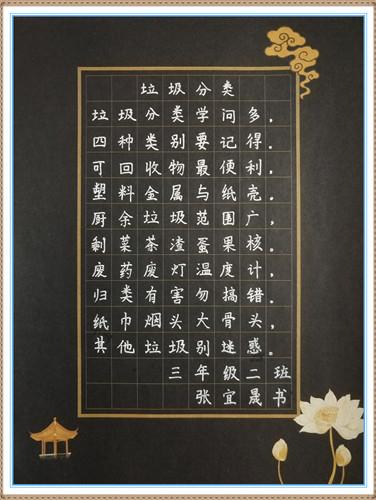 垃圾分类
垃圾分类学问多，
四种类别要记得。
可回收物最便利，
塑料金属与纸壳。
厨余垃圾范围广，
剩菜茶渣蛋果核。
废药废灯温度计，
归类有害勿搞错。
纸巾烟头大骨头，
其他垃圾别迷惑。
三年级二班
张宜晟书